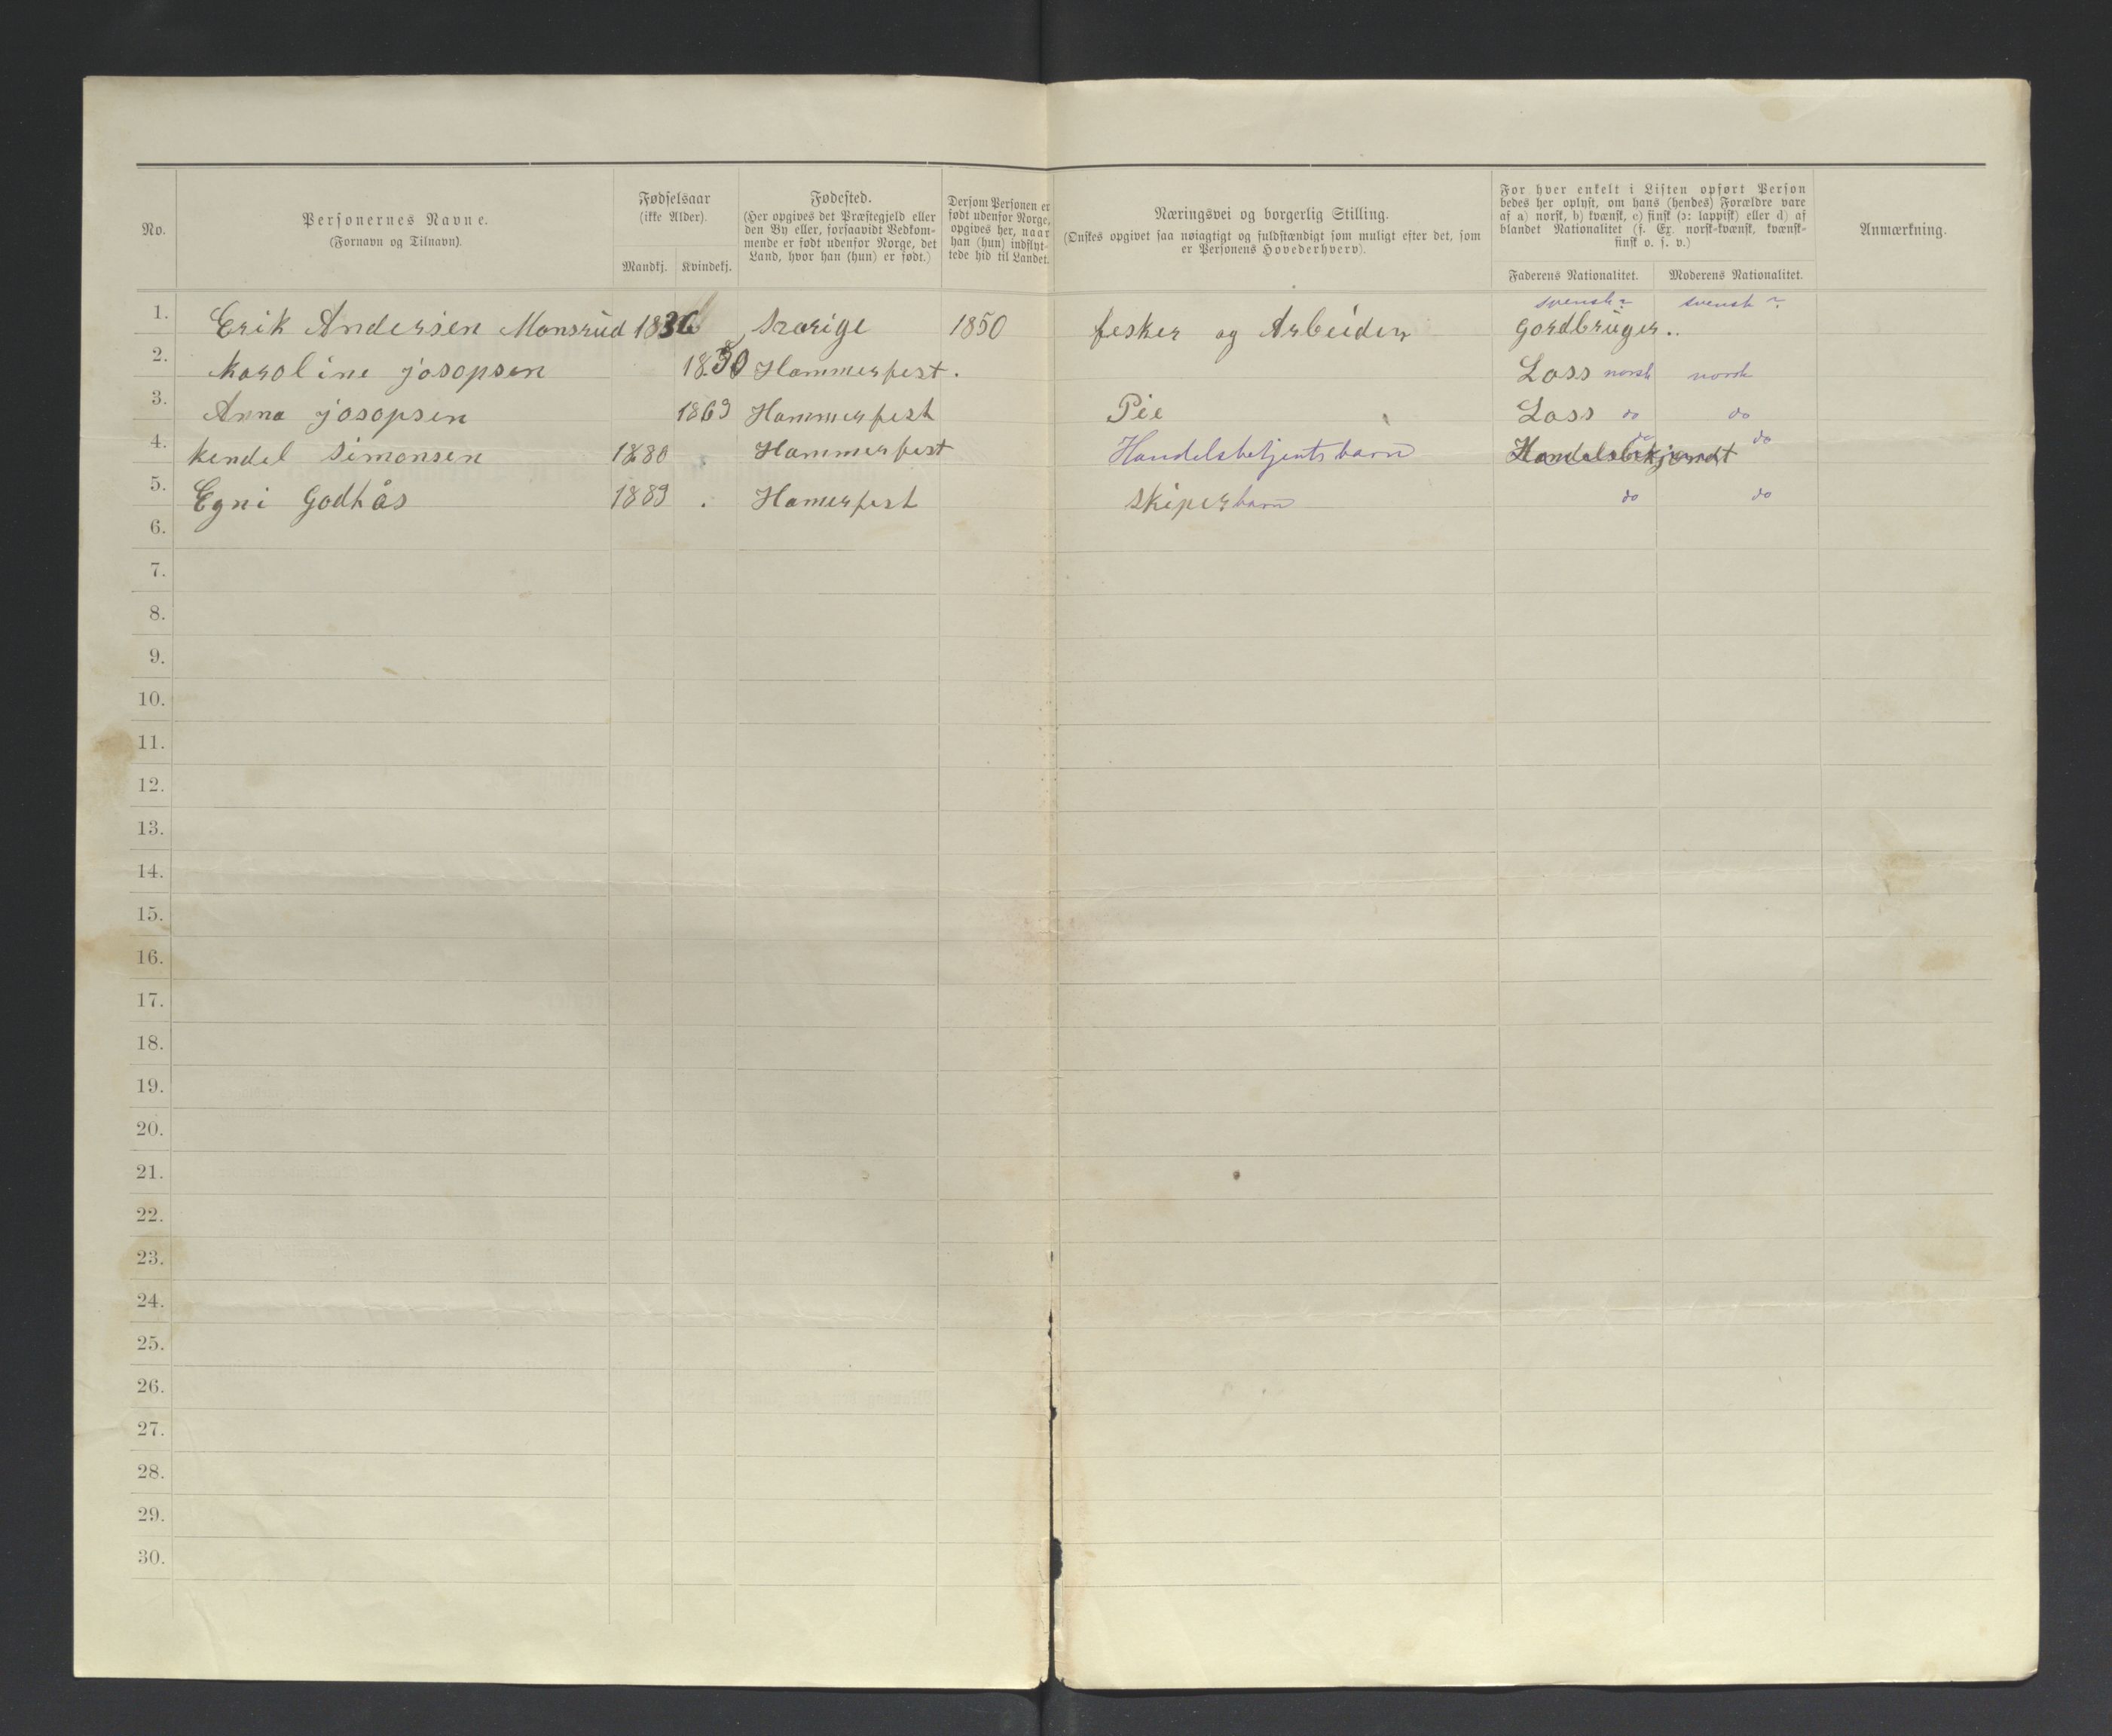 No.
Personernes Navne.
(Fornavn og Tilnavn).
Fødselsaar
(ikke Alder).
Mandkj. Kvindekj.
Fødested.
(Her opgives det Præstegjeld eller
den By eller, forsaavidt Vedkom-
mende er født udenfor Norge, det
Land, hvor han (hun) er født.)
Dersom Personen er
født udenfor Norge,
opgives her, naar
han (hun) indflyt-
tede hid til Landet.
Næringsvei og borgerlig Stilling.
(Ønskes opgivet saa nøiagtigt og fuldstændigt som muligt efter det, som
er Personens Hovederhverv).
For hver enkelt i Listen opført Person
bedes her oplyst, om hans (hendes) Forældre vare
af a) norsk, b) kvænsk, c) finsk (ɔ: lappisk) eller d) af
blandet Nationalitet (f. Ex. norsk-kvænsk, kvænsk-
finsk o. s. v.)
Faderens Nationalitet. Moderens Nationalitet.
Anmærkning.
svensk? svensk?
1. Erik Andersen Monsrud 1836 Svorige 1850 fesker og Arbeider gordbruger..
2. Karoline josopsen 1830 Hammerfest. Loss norsk norsk
3. Anna josopsen 1869 Hammerfest Pie Loss do do
4. Kendel Simonsen 1880 Hammerfest Handelsbetjents barn Handelsbekjendt do do
5. Egni Godhås 1889 Hamerfest Skiper barn do do
6.
7.
8.
9.
10.
11.
12.
13.
14.
15.
16.
17.
18.
19.
20.
21.
22.
23.
24.
25.
26.
27.
28.
29.
30.